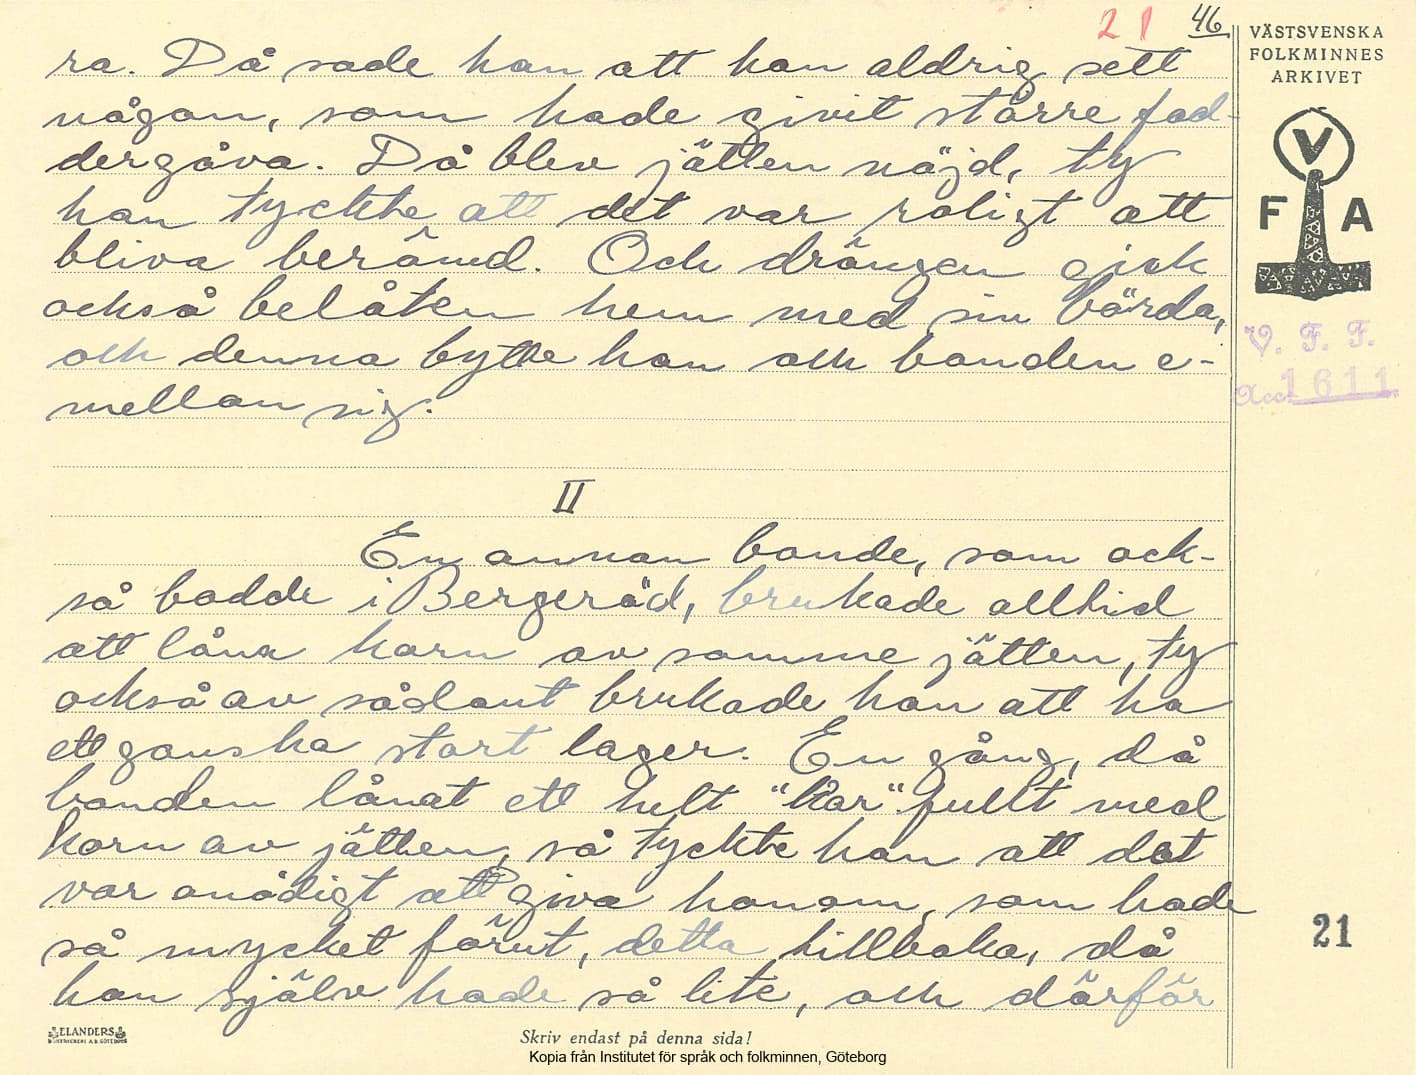 21 46
VÄSTSVENSKA
FOLKMINNES
ARKIVET
ra. Då sade han att han aldrig sett
någon, som hade givit större fad-
dergåva. Då blev jätten nöjd, ty
han tyckte att det var roligt att
bliva berömd. Och drängen gick
också belåten hem med sin börda,
och denna bytte han och bonden e-
mellan sig.
V
F A
V. F. F.
Acc. 1611
II
En annan bonde, som ock-
så bodde i Bergeröd, brukade alltid
att låna korn av samme jätten, ty
också av sådant brukade han att ha
ett ganska stort lager. En gång, då
bonden lånat ett helt "kar" fullt med
korn av jätten, så tyckte han att det
var onödigt att giva honom, som hade
så mycket förut, detta tillbaka, då
han själv hade så lite, och därför
21
ELANDERS
BOKTRYCKERI A.B. GÖTEBORG
Skriv endast på denna sida!
Kopia från Institutet för språk och folkminnen, Göteborg